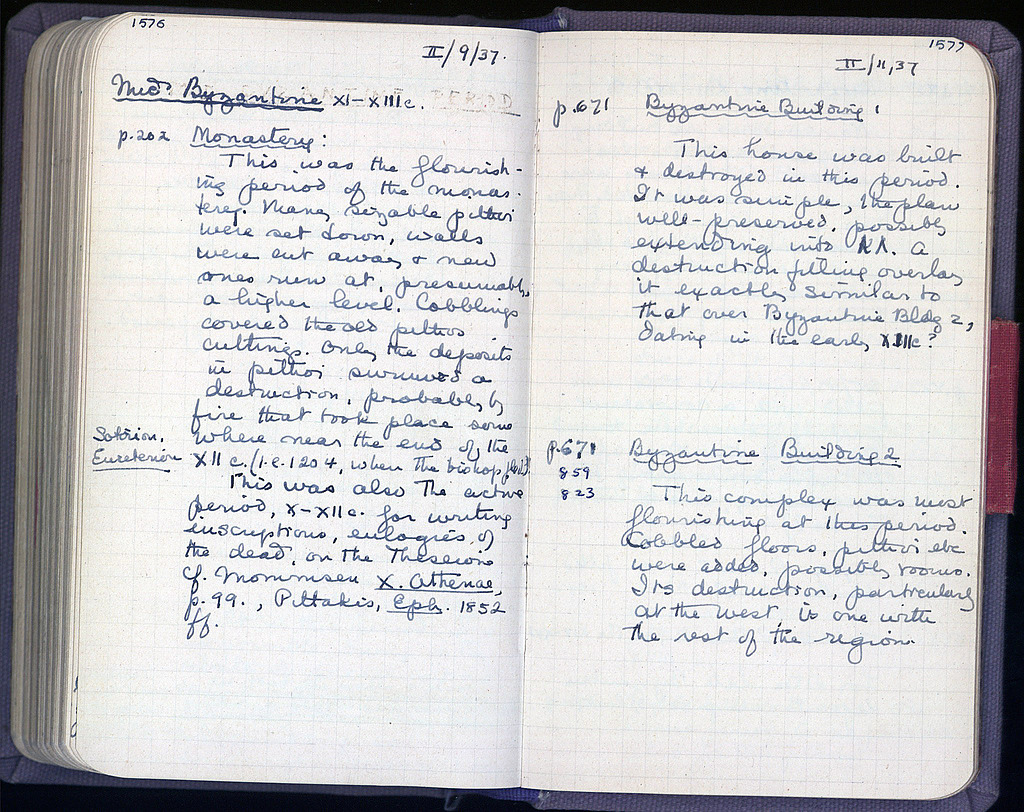 1576
II/9/37.
Med? Byzantine XI-XIIIc.
p.202 Monastery:
This was the flourish-
ing period of the monas-
tery. Many sizable pithoi
were set down, walls
were cut away & new
ones run at, presumably,
a higher level. Cobblings
covered the old pithos
cuttings. Only the deposits
in pithoi survived a
destruction, probably by
fire that took place some
where near the end of the
Sotirion, Eureterion
XII c./i.e. 1204, when the bishop fled.
This was also the active
period, X-XIIc. for writing
inscriptions, eulogies of
the dead, on the Theseion
cf. Mommsen X. Athenae,
p. 99., Pittakis, Eph. 1852
ff.
1577
II/11,37
p.671 Byzantine Building 1
This house was built
& destroyed in this period.
It was simple, the plan
well-preserved, possibly
extending into ΛΛ. A
destruction filling overlay
it exactly similar to
that over Byzantine Bldg 2,
dating in the early XIIIc?
p.671 Byzantine Building 2
859
823
This complex was most
flourishing at this period.
Cobbled floors, pithoi etc
were added, possibly rooms.
Its destruction, particularly
at the west, is one with
the rest of the region.